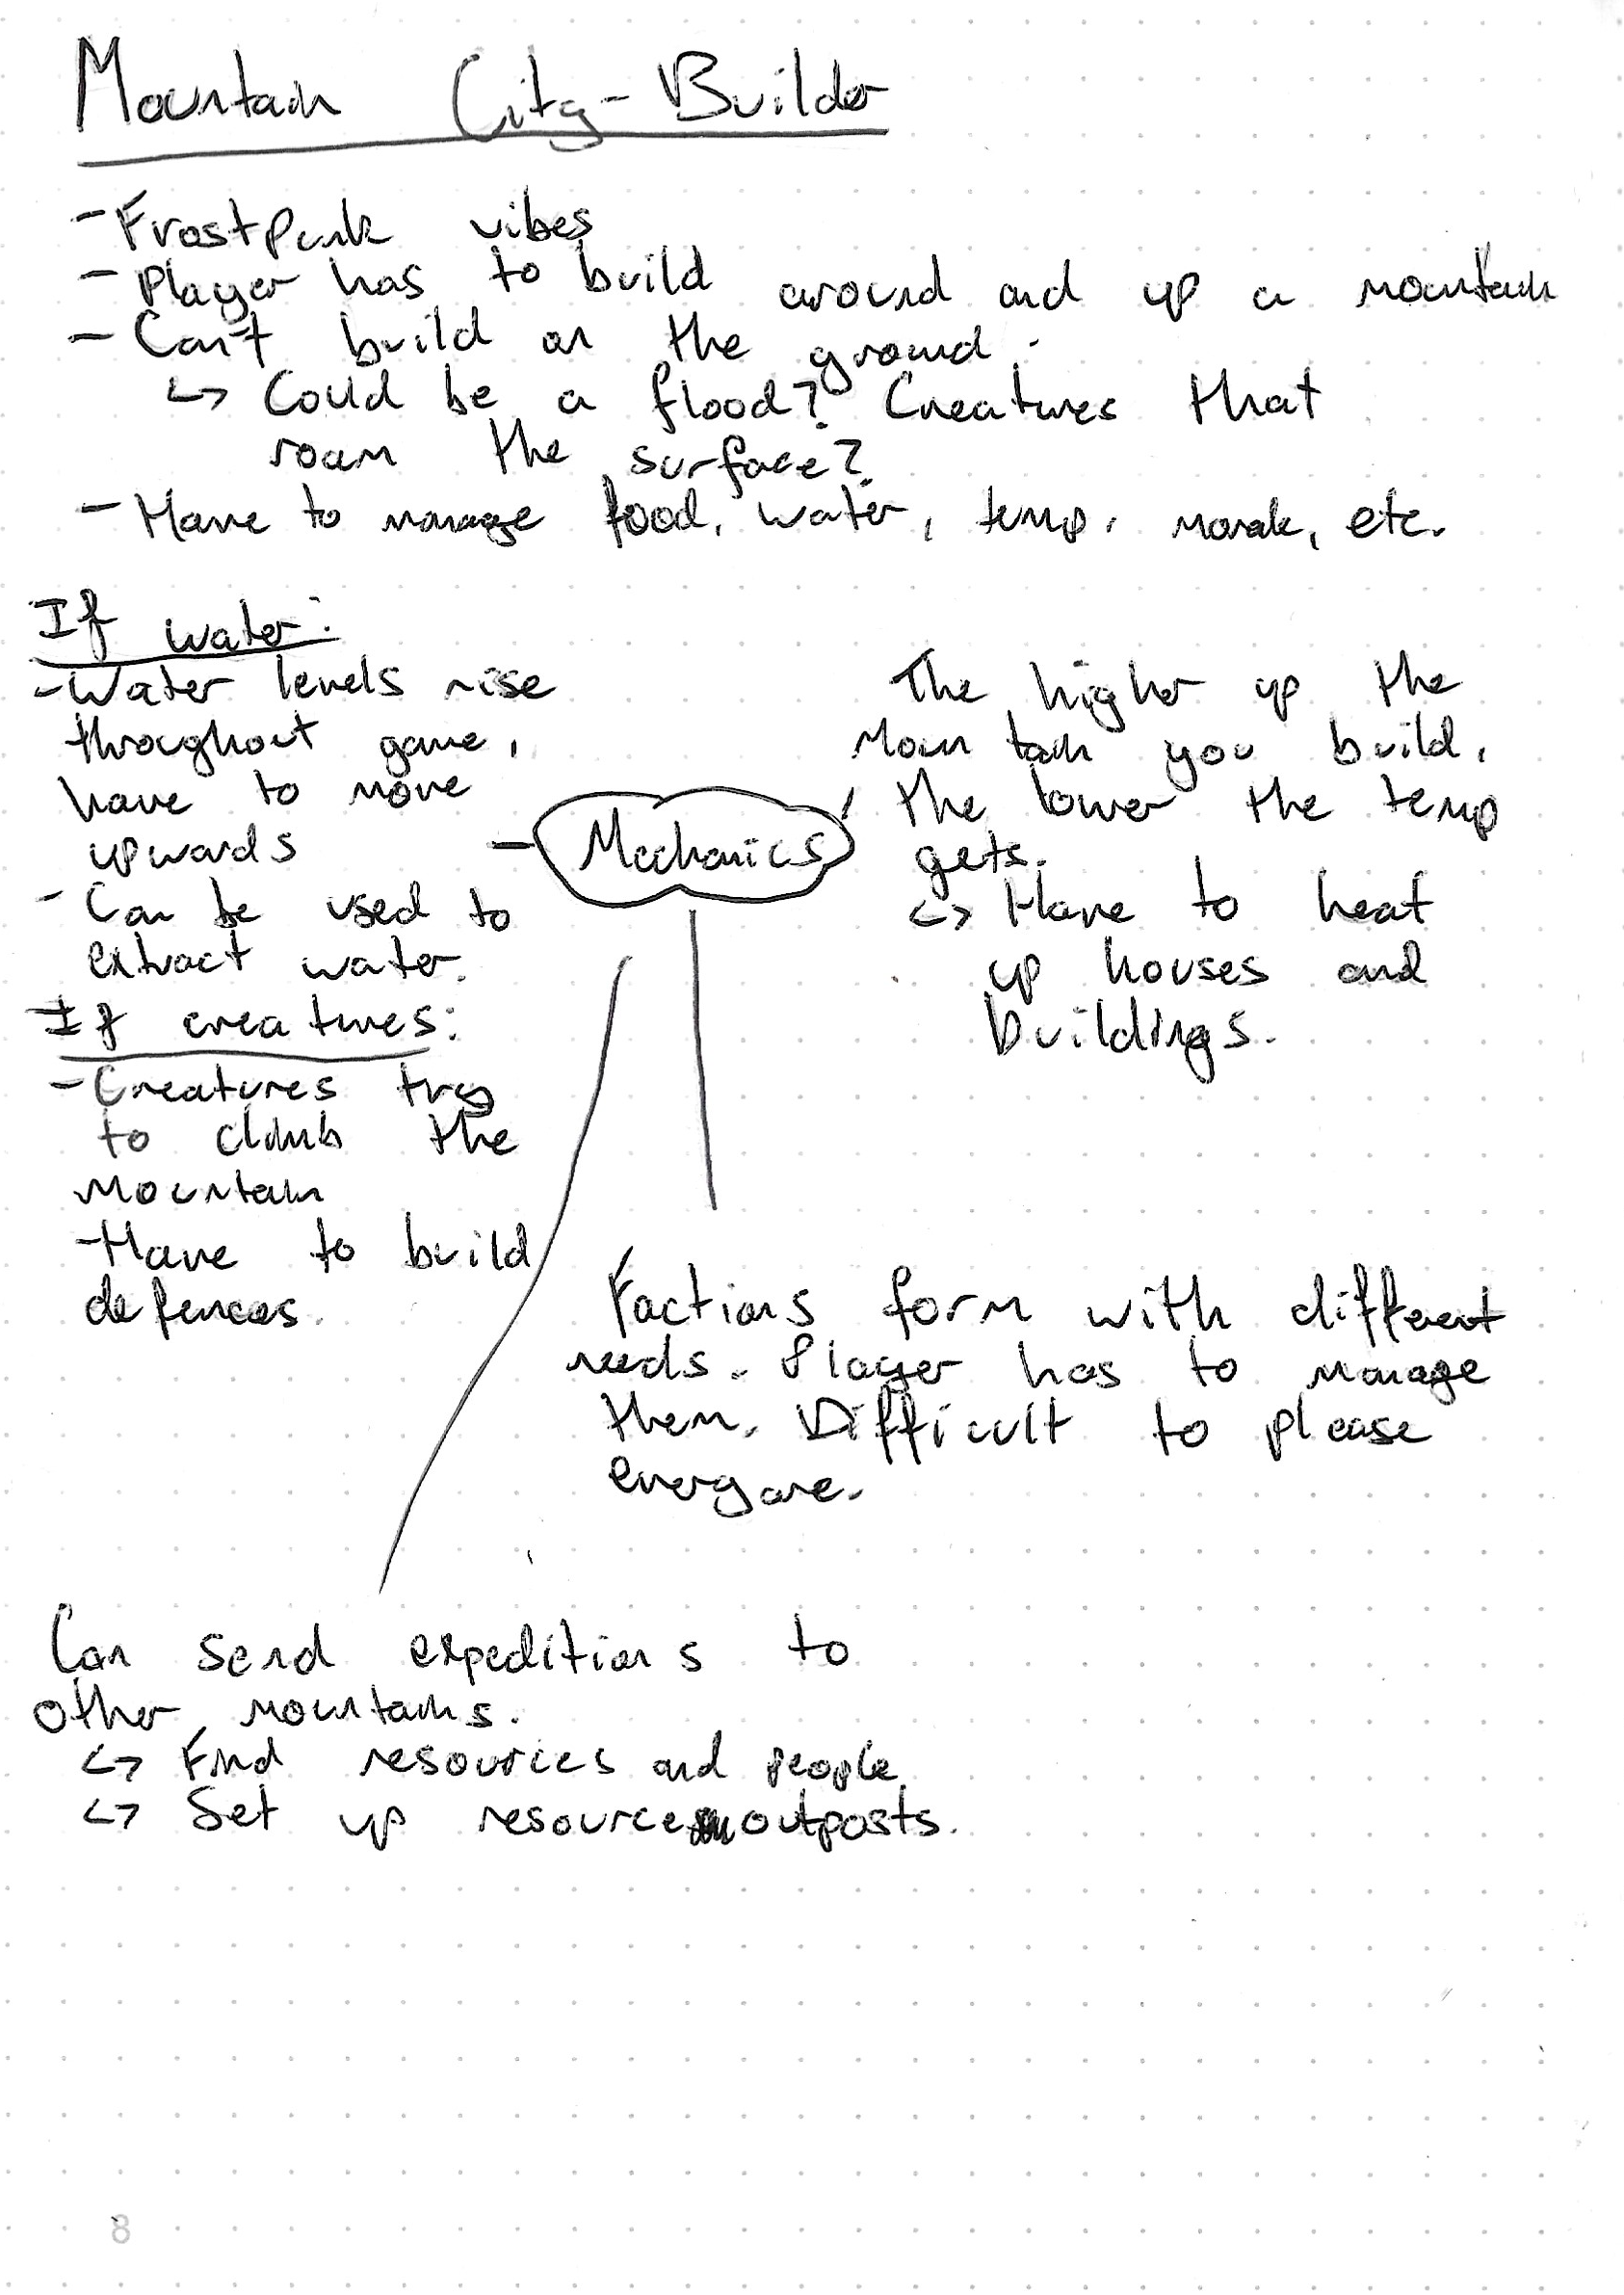 Mountain City-Builder
- Frostpunk vibes
- Player has to build around and up a mountain
- Can't build on the ground.
↳ Could be a flood? Creatures that
roam the surface?
- Have to manage food, water, temp, morale, etc.
If water:
- Water levels rise
throughout game,
have to move
upwards
- Can be used to
extract water.
If creatures:
- Creatures try
to climb the
mountain
- Have to build
defences.
Mechanics
The higher up the
mountain you build,
the lower the temp
gets.
↳ Have to heat
up houses and
buildings.
Factions form with different
needs. Player has to manage
them. Difficult to please
everyone.
Can send expeditions to
other mountains.
↳ Find resources and people
↳ Set up resource outposts.
8